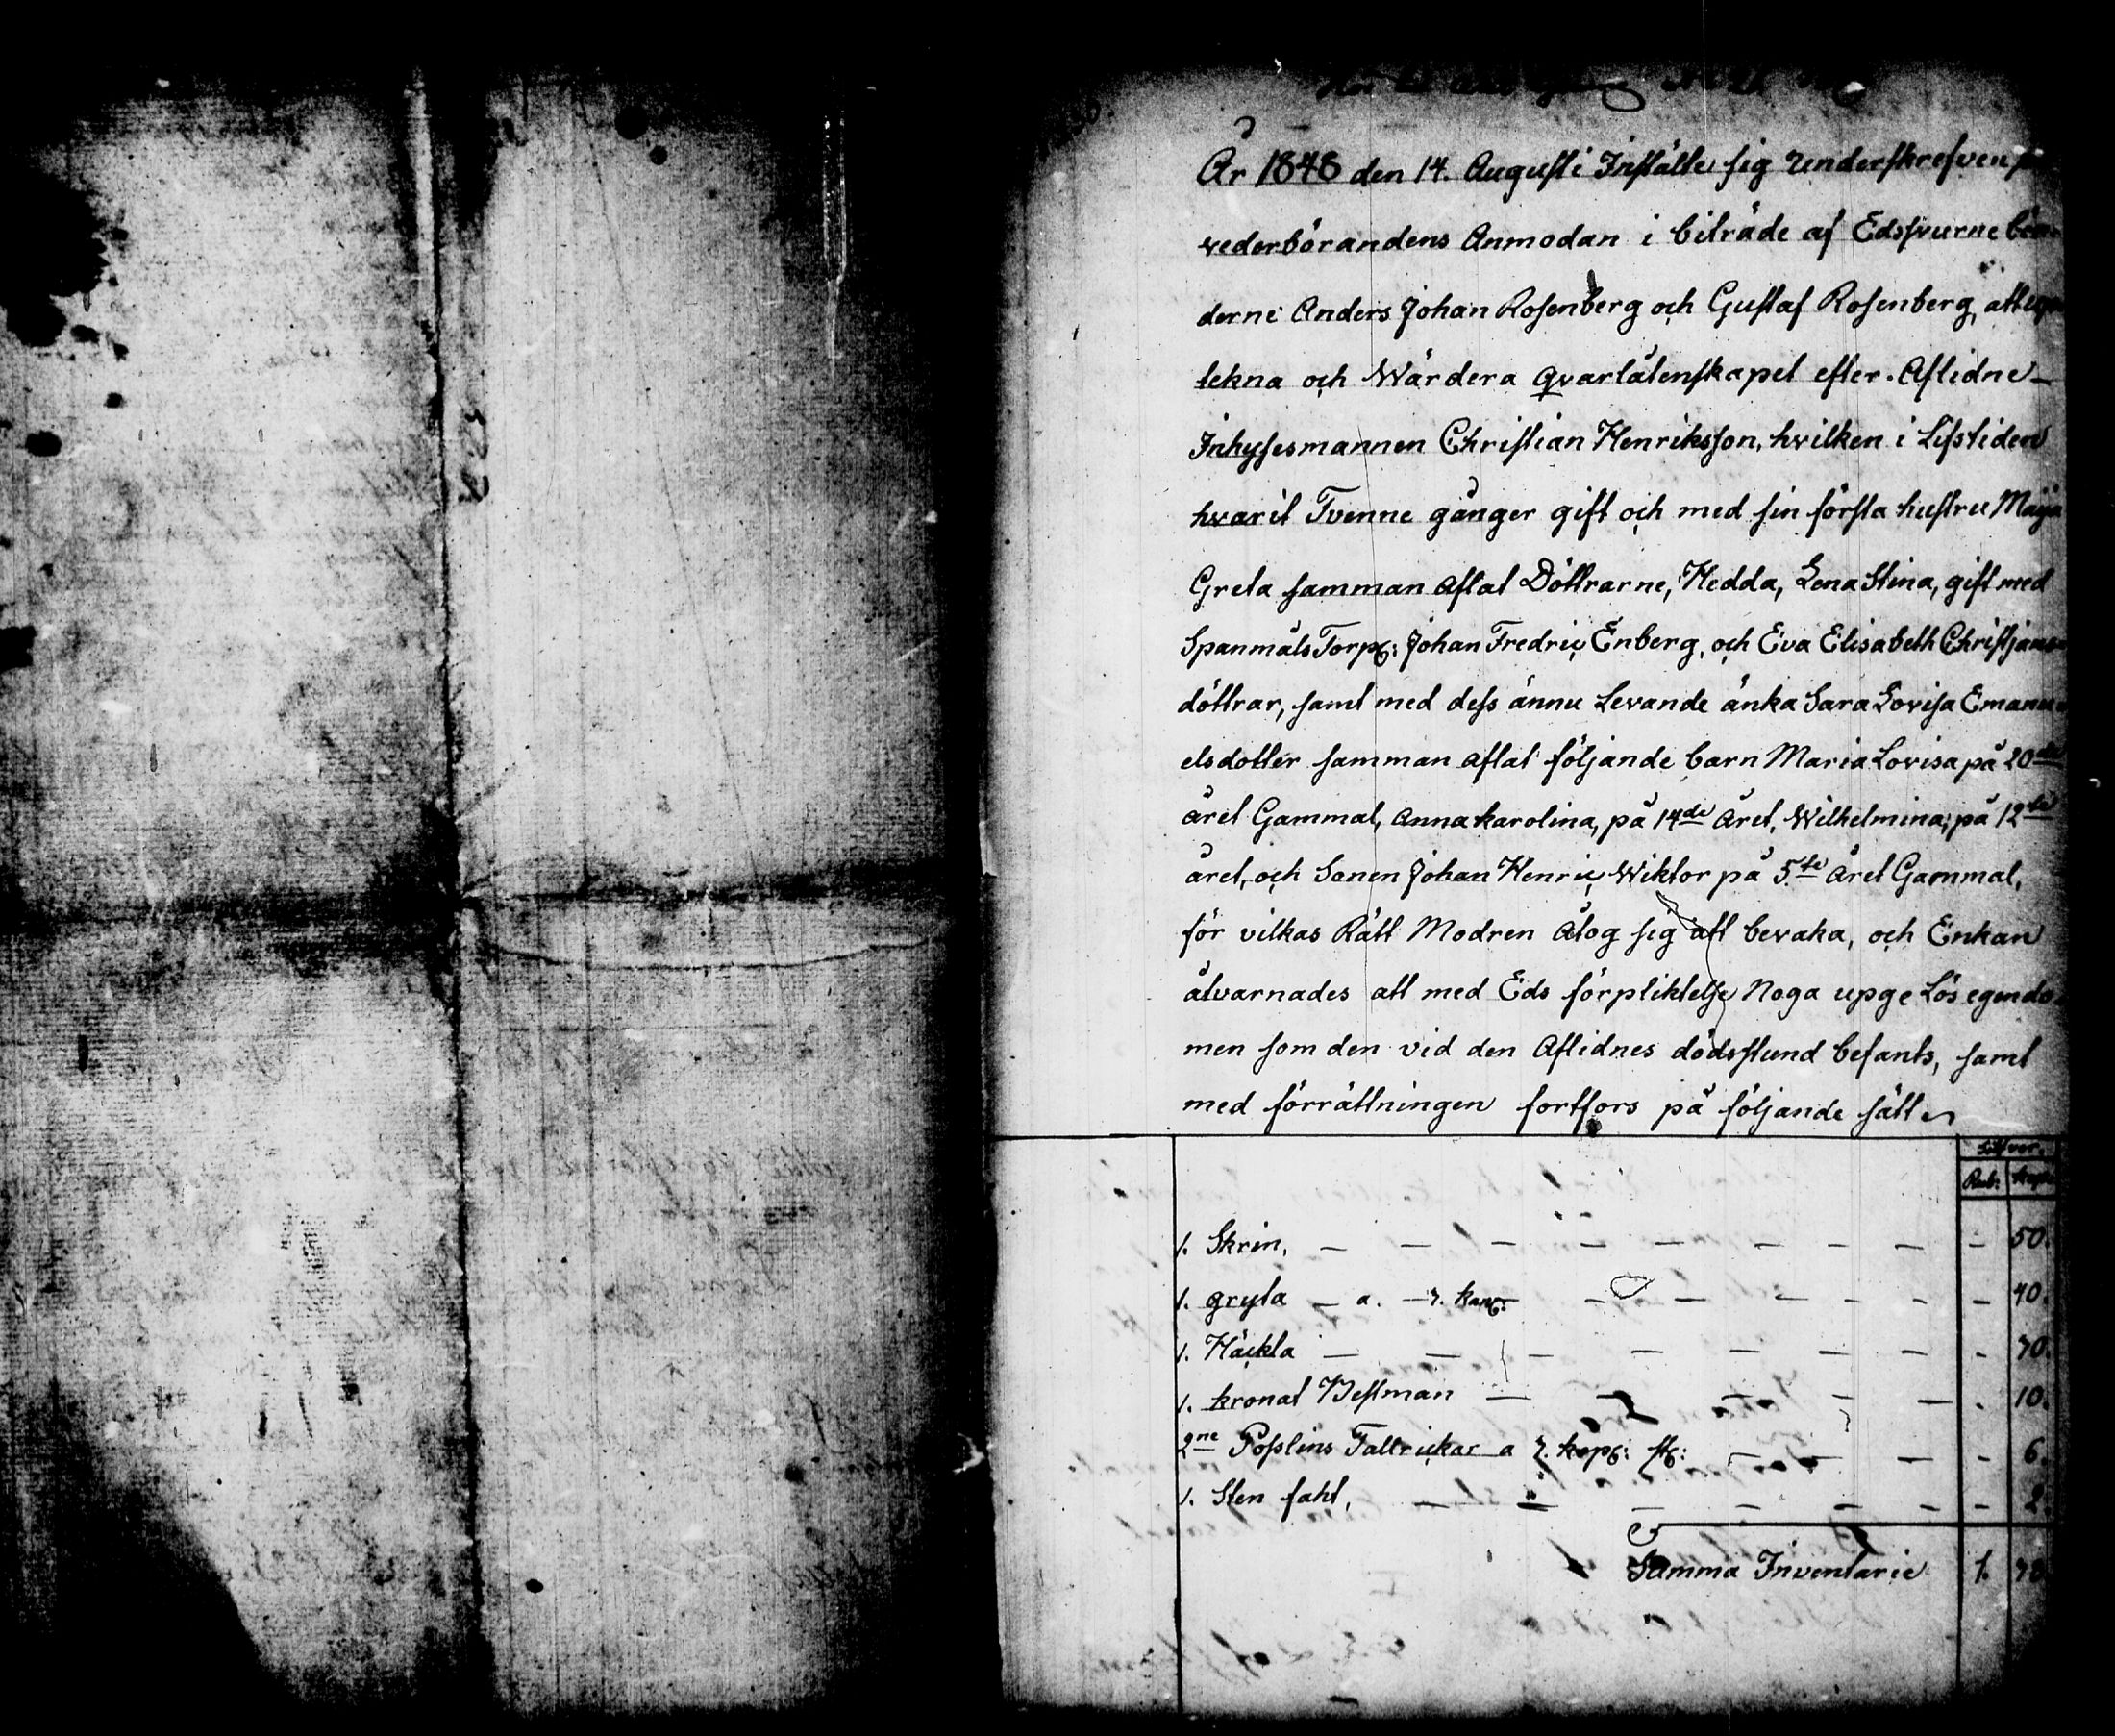 År 1848 den 14. Augusti Instälte sig Underskrefven
vederbörandens Anmodan i biträde af Edsvurne bön-
derne Anders Johan Rosenberg och Gustaf Rosenberg, att
tekna och Wärdera qvarlåtenskapet efter Aflidne
Inhysesmannen Christian Henriksson, hvilken i Lifstiden
hvarit Tvenne gånger gift och med sin första hustru Maja
Greta samman Aflat Döttrarne, Hedda, Lena Stina, gift med
Spanmåls Torp: Johan Fredric Enberg, och Eva Elisabeth Christjans-
döttrar, samt med dess ännu Levande änka Sara Lovisa Emanu-
elsdotter samman aflat följande barn Maria Lovisa på 20de
året Gammal, Anna karolina, på 14de Året, Wilhelmina, på 12te
året, och Sonen Johan Henric Wiktor på 5te Året Gammal,
för vilkas Rätt Modren Åtog sig att bevaka, och Enkan
åtvarnades att med Eds förpliktelse Noga upge Lös egendo-
men som den vid den Aflidnes dödsstund befants, samt
med förrättningen fortfors på följande sätt
Silfver.
Rub: kop:
1. Skrin, — — — — — — — — - 50.
1. gryta — a. — kan: — — — — — - 40.
1. Häckla — — — — — — — - 70.
1. kronat Bestman — — — — — . 10.
2ne Poslins Tallrickar a 3. kop: st: — — — - 6.
1. Sten faht, — — — — — — - 2.
Summa Inventarie 1. 78